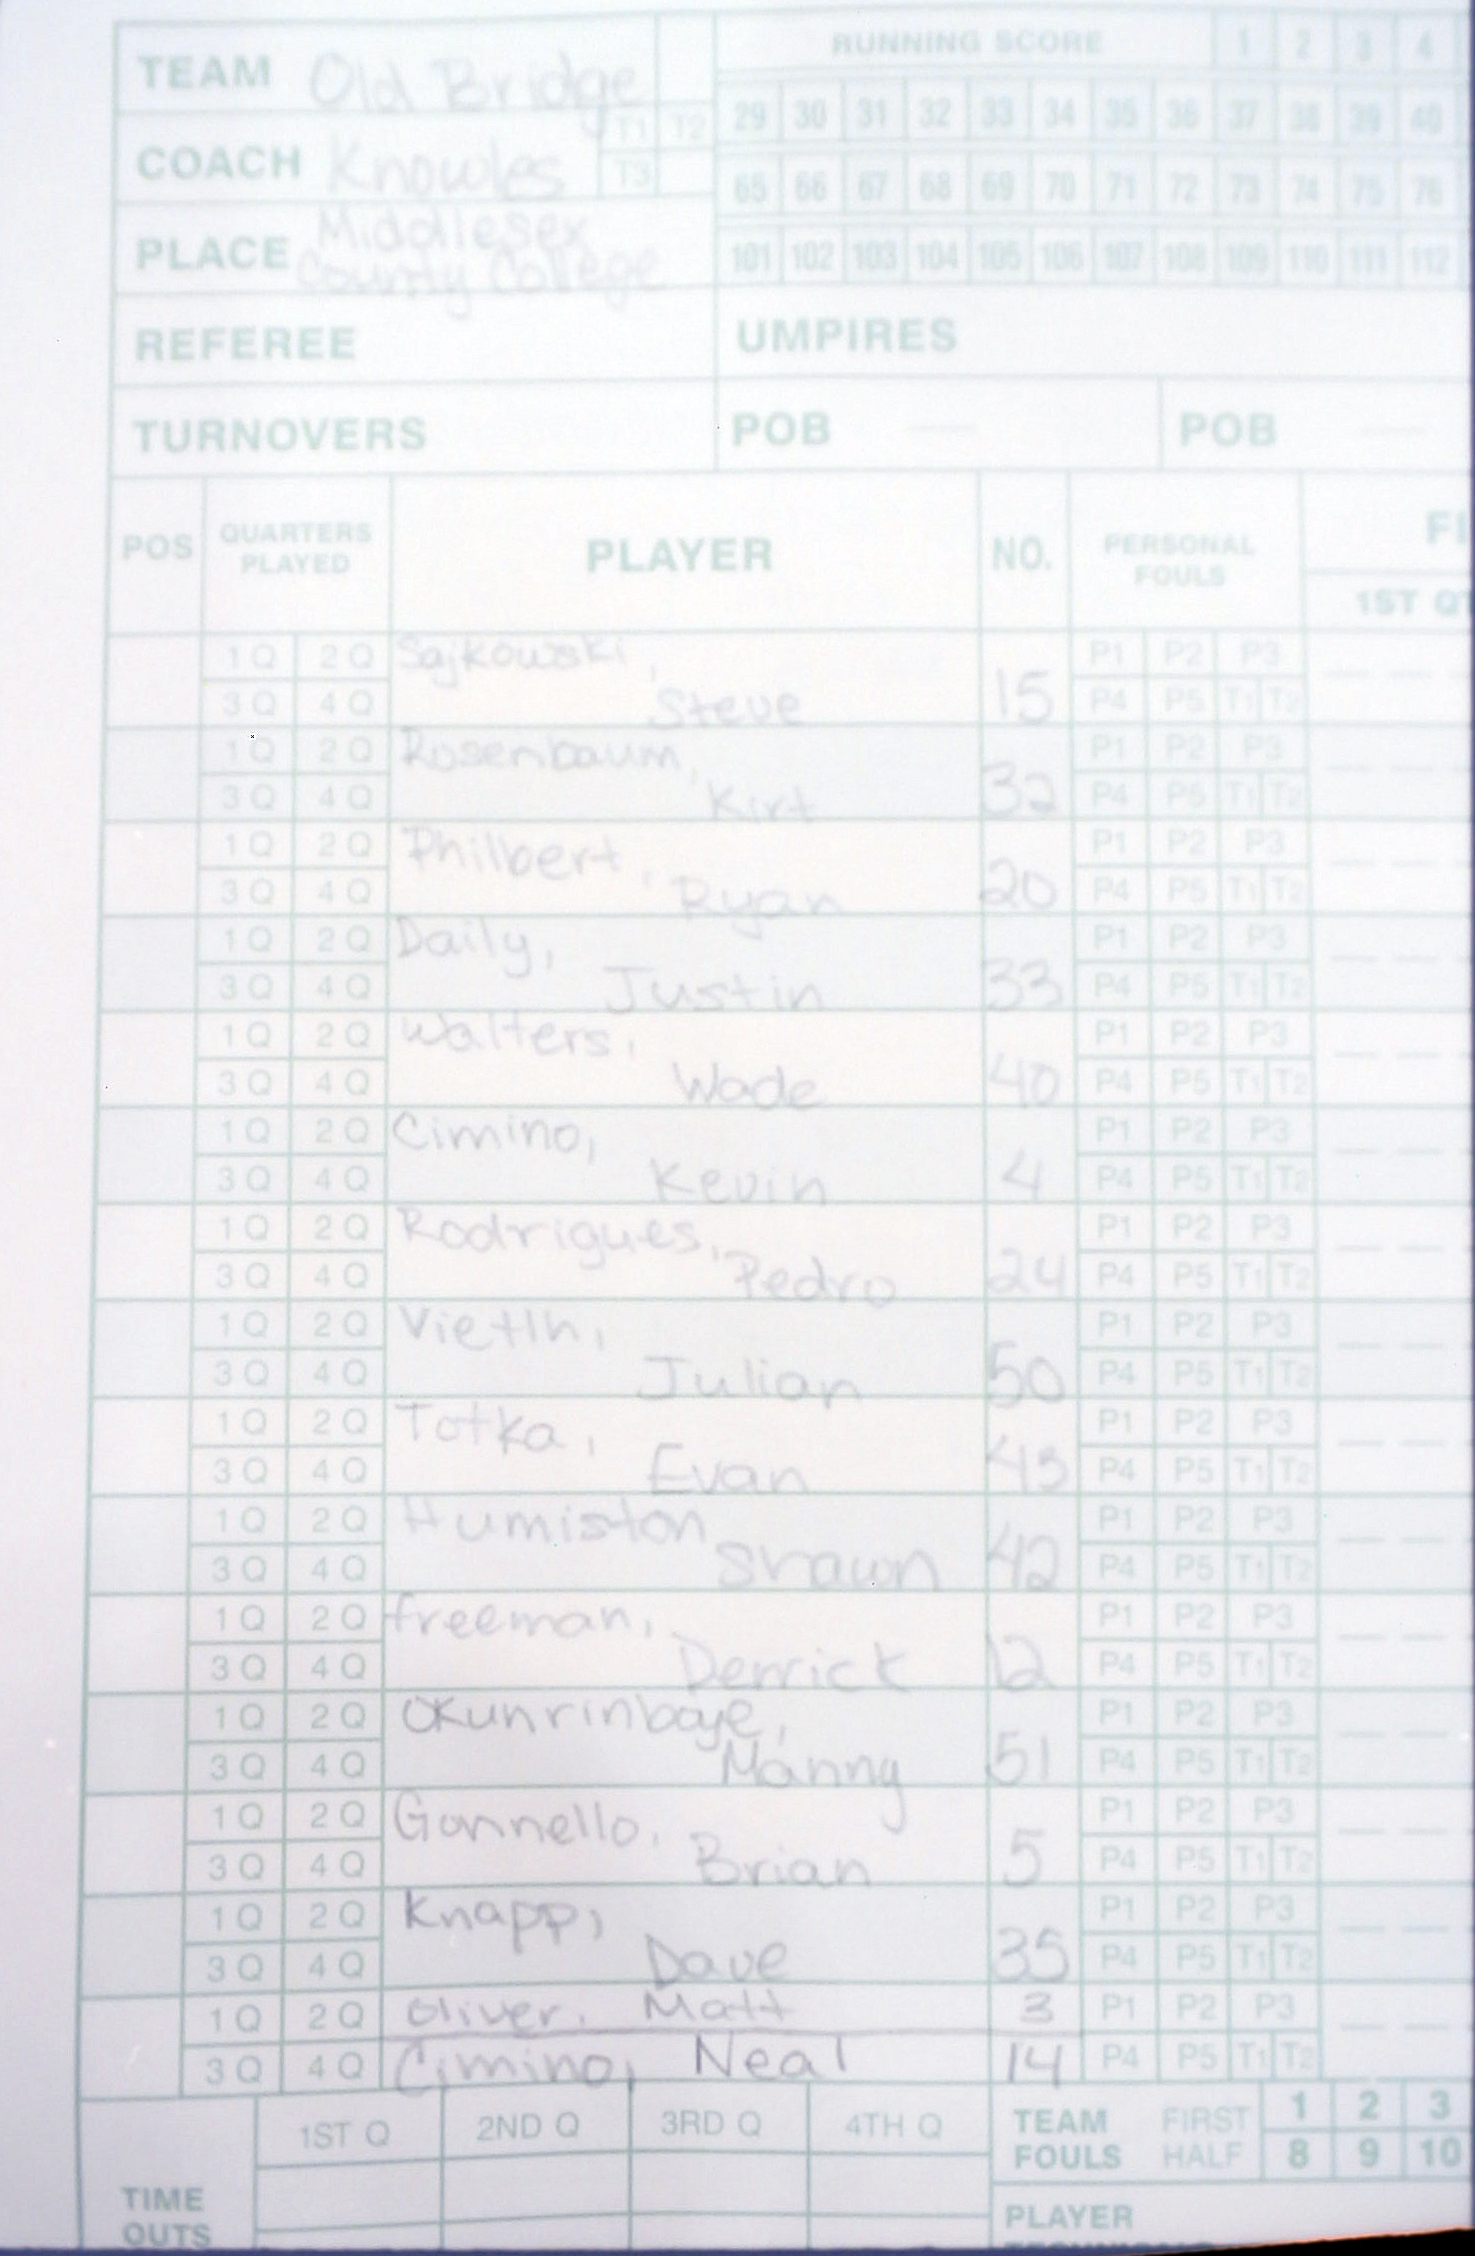 TEAM Old Bridge
RUNNING SCORE 1 2 3 4
29 30 31 32 33 34 35 36 37 38 39 40
COACH Knowles T1 T2
T3
65 66 67 68 69 70 71 72 73 74 75 76
PLACE Middlesex
County College
101 102 103 104 105 106 107 108 109 110 111 112
REFEREE UMPIRES
TURNOVERS POB POB
POS QUARTERS PLAYED PLAYER NO. PERSONAL FOULS FI
1ST QT
1Q 2Q Sajkowski, P1 P2 P3
3Q 4Q Steve 15 P4 P5 T1 T2
1Q 2Q Rosenbaum, P1 P2 P3
3Q 4Q Kirt 32 P4 P5 T1 T2
1Q 2Q Philbert, P1 P2 P3
3Q 4Q Ryan 20 P4 P5 T1 T2
1Q 2Q Daily, P1 P2 P3
3Q 4Q Justin 33 P4 P5 T1 T2
1Q 2Q Walters, P1 P2 P3
3Q 4Q Wade 40 P4 P5 T1 T2
1Q 2Q Cimino, P1 P2 P3
3Q 4Q Kevin 4 P4 P5 T1 T2
1Q 2Q Rodrigues, P1 P2 P3
3Q 4Q Pedro 24 P4 P5 T1 T2
1Q 2Q P1 P2 P3
3Q 4Q Julian 50 P4 P5 T1 T2
1Q 2Q Totka, P1 P2 P3
3Q 4Q Evan 43 P4 P5 T1 T2
1Q 2Q Humiston P1 P2 P3
3Q 4Q Shawn 42 P4 P5 T1 T2
1Q 2Q freeman, P1 P2 P3
3Q 4Q Derrick 12 P4 P5 T1 T2
1Q 2Q Okunrinboye, P1 P2 P3
3Q 4Q Manny 51 P4 P5 T1 T2
1Q 2Q Gonnello, P1 P2 P3
3Q 4Q Brian 5 P4 P5 T1 T2
1Q 2Q Knapp, P1 P2 P3
3Q 4Q Dave 35 P4 P5 T1 T2
1Q 2Q Oliver, Matt 3 P1 P2 P3
3Q 4Q Cimino, Neal 14 P4 P5 T1 T2
1ST Q 2ND Q 3RD Q 4TH Q TEAM FOULS FIRST HALF 1 2 3
8 9 10
TIME OUTS
PLAYER